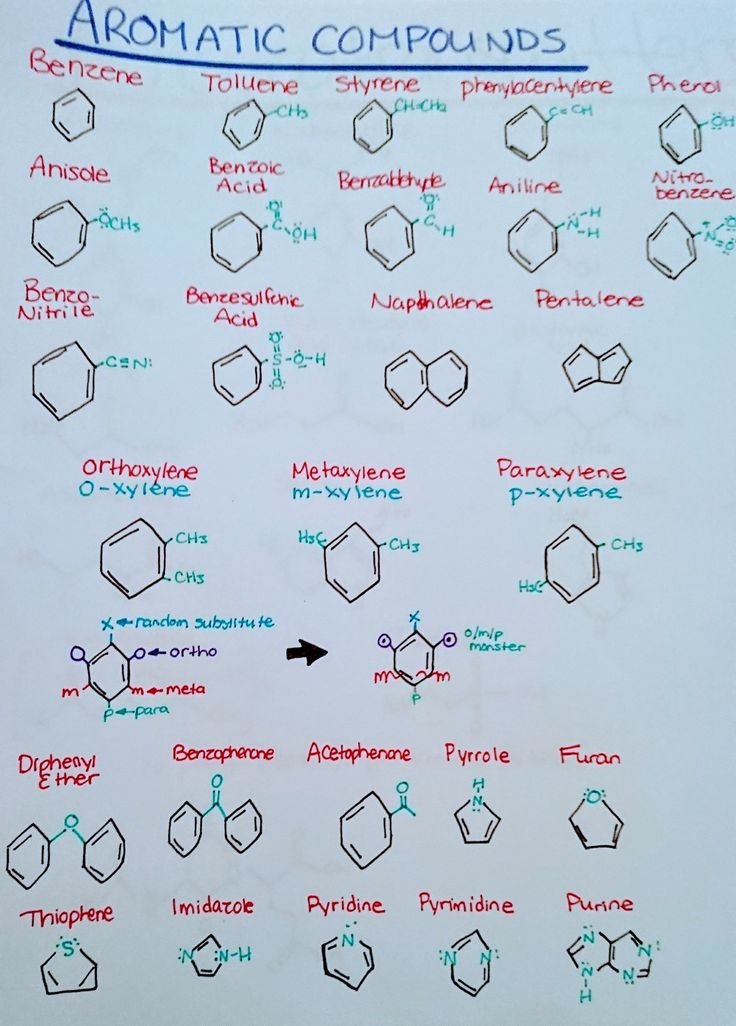 AROMATIC COMPOUNDS
Benzene
Toluene
Styrene
phenylacentylene
Phenol
CH3
CH=CH2
C≡CH
ÖH
Anisole
Benzoic
Acid
Benzaldehyde
Aniline
Nitro-
benzene
ÖCH3
O
C
ÖH
O
C
H
N
H
H
O
N=O
Benzo-
Nitrile
Benzesulfonic
Acid
Napthalene
Pentalene
C≡N:
O
S-O-H
O
Orthoxylene
O-xylene
Metaxylene
m-xylene
Paraxylene
p-xylene
CH3
CH3
H3C
CH3
CH3
H3C
X ← random substitute
O ← ortho
m
m ← meta
p ← para
X
o/m/p
monster
m
m
p
Diphenyl
Ether
Benzophenone
Acetophenone
Pyrrole
Furan
O
O
O
H
N
O
Thiophene
Imidazole
Pyridine
Pyrimidine
Purine
S
:N
:N-H
N
N
N
N
N:
N
H
N